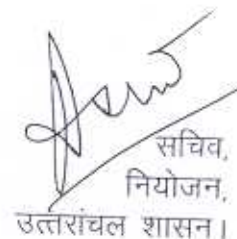 सचिव,
नियोजन,
उत्तरांचल शासन।